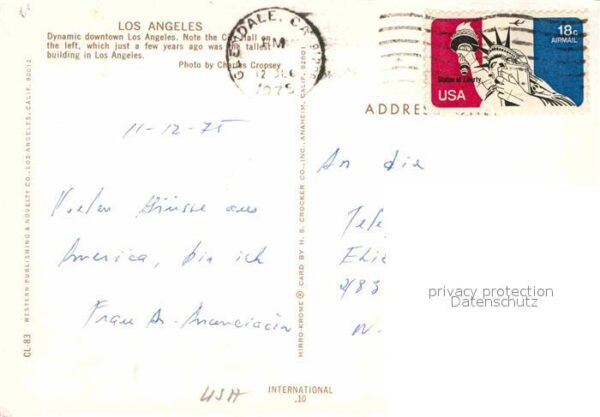 LOS ANGELES
Dynamic downtown Los Angeles. Note the City Hall on
the left, which just a few years ago was the tallest
building in Los Angeles.
Photo by Charles Cropsey
GLENDALE, CA
PM
1975
18c
AIRMAIL
Statue of Liberty
USA
ADDRESS ONLY
11-12-75
Vielen Grüsse aus
America, bin ich
Frau
An die
Tele
WESTERN PUBLISHING & NOVELTY CO., LOS ANGELES, CALIF. 90012
CL-83
MIRRO-KROME® CARD BY H. S. CROCKER CO., INC., ANAHEIM, CALIF. 92801
privacy protection
Datenschutz
USA
INTERNATIONAL
.10